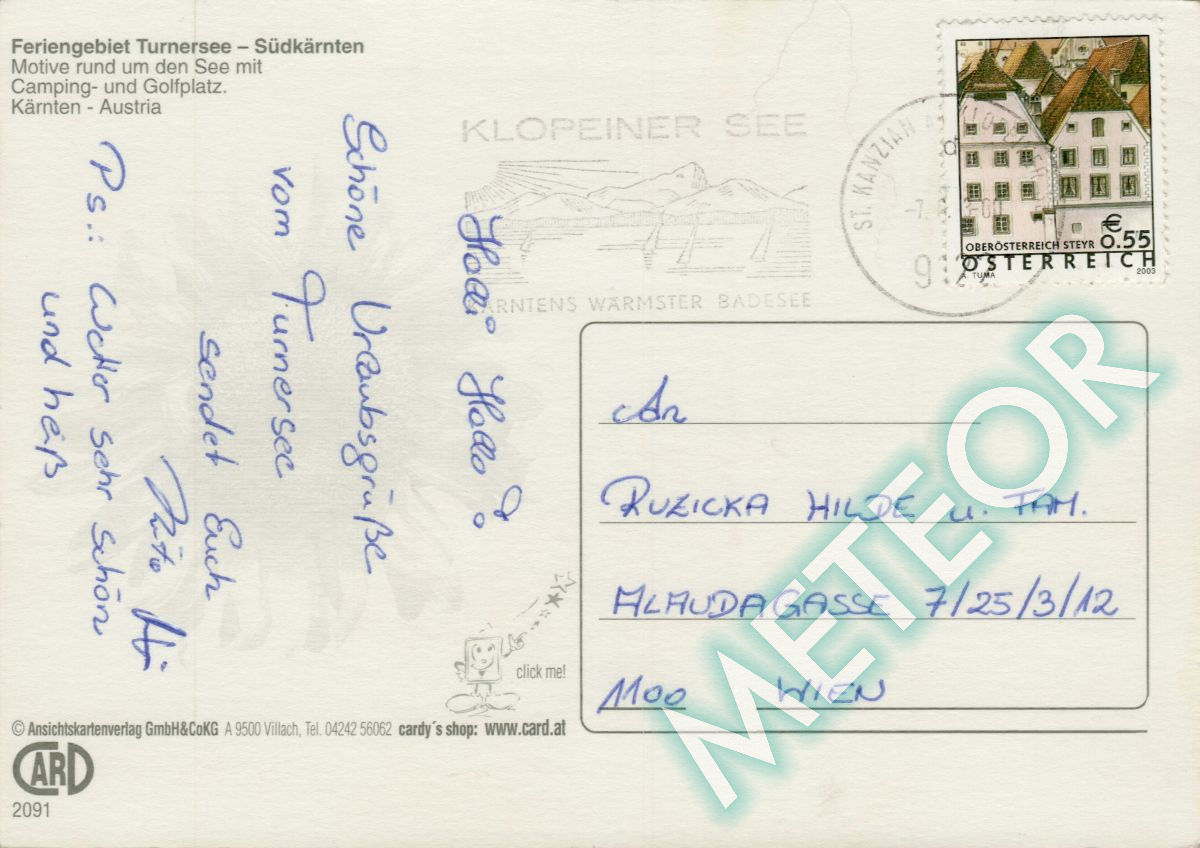 Feriengebiet Turnersee – Südkärnten
Motive rund um den See mit
Camping- und Golfplatz.
Kärnten - Austria
KLOPEINER SEE
KÄRNTENS WÄRMSTER BADESEE
ST. KANZIAN A
OBERÖSTERREICH STEYR
€ 0.55
ÖSTERREICH
A. TUMA
2003
Halli Hallo!
Schöne Urlaubsgrüße
vom Turnersee
sendet Euch
Ps.: Wetter sehr schön
und heiß
An
RUZICKA HILDE u. FAM.
ALAUDAGASSE 7/25/3/12
1100 WIEN
METEOR
click me!
© Ansichtskartenverlag GmbH&CoKG A 9500 Villach, Tel. 04242 56062 cardy´s shop: www.card.at
CARD
2091